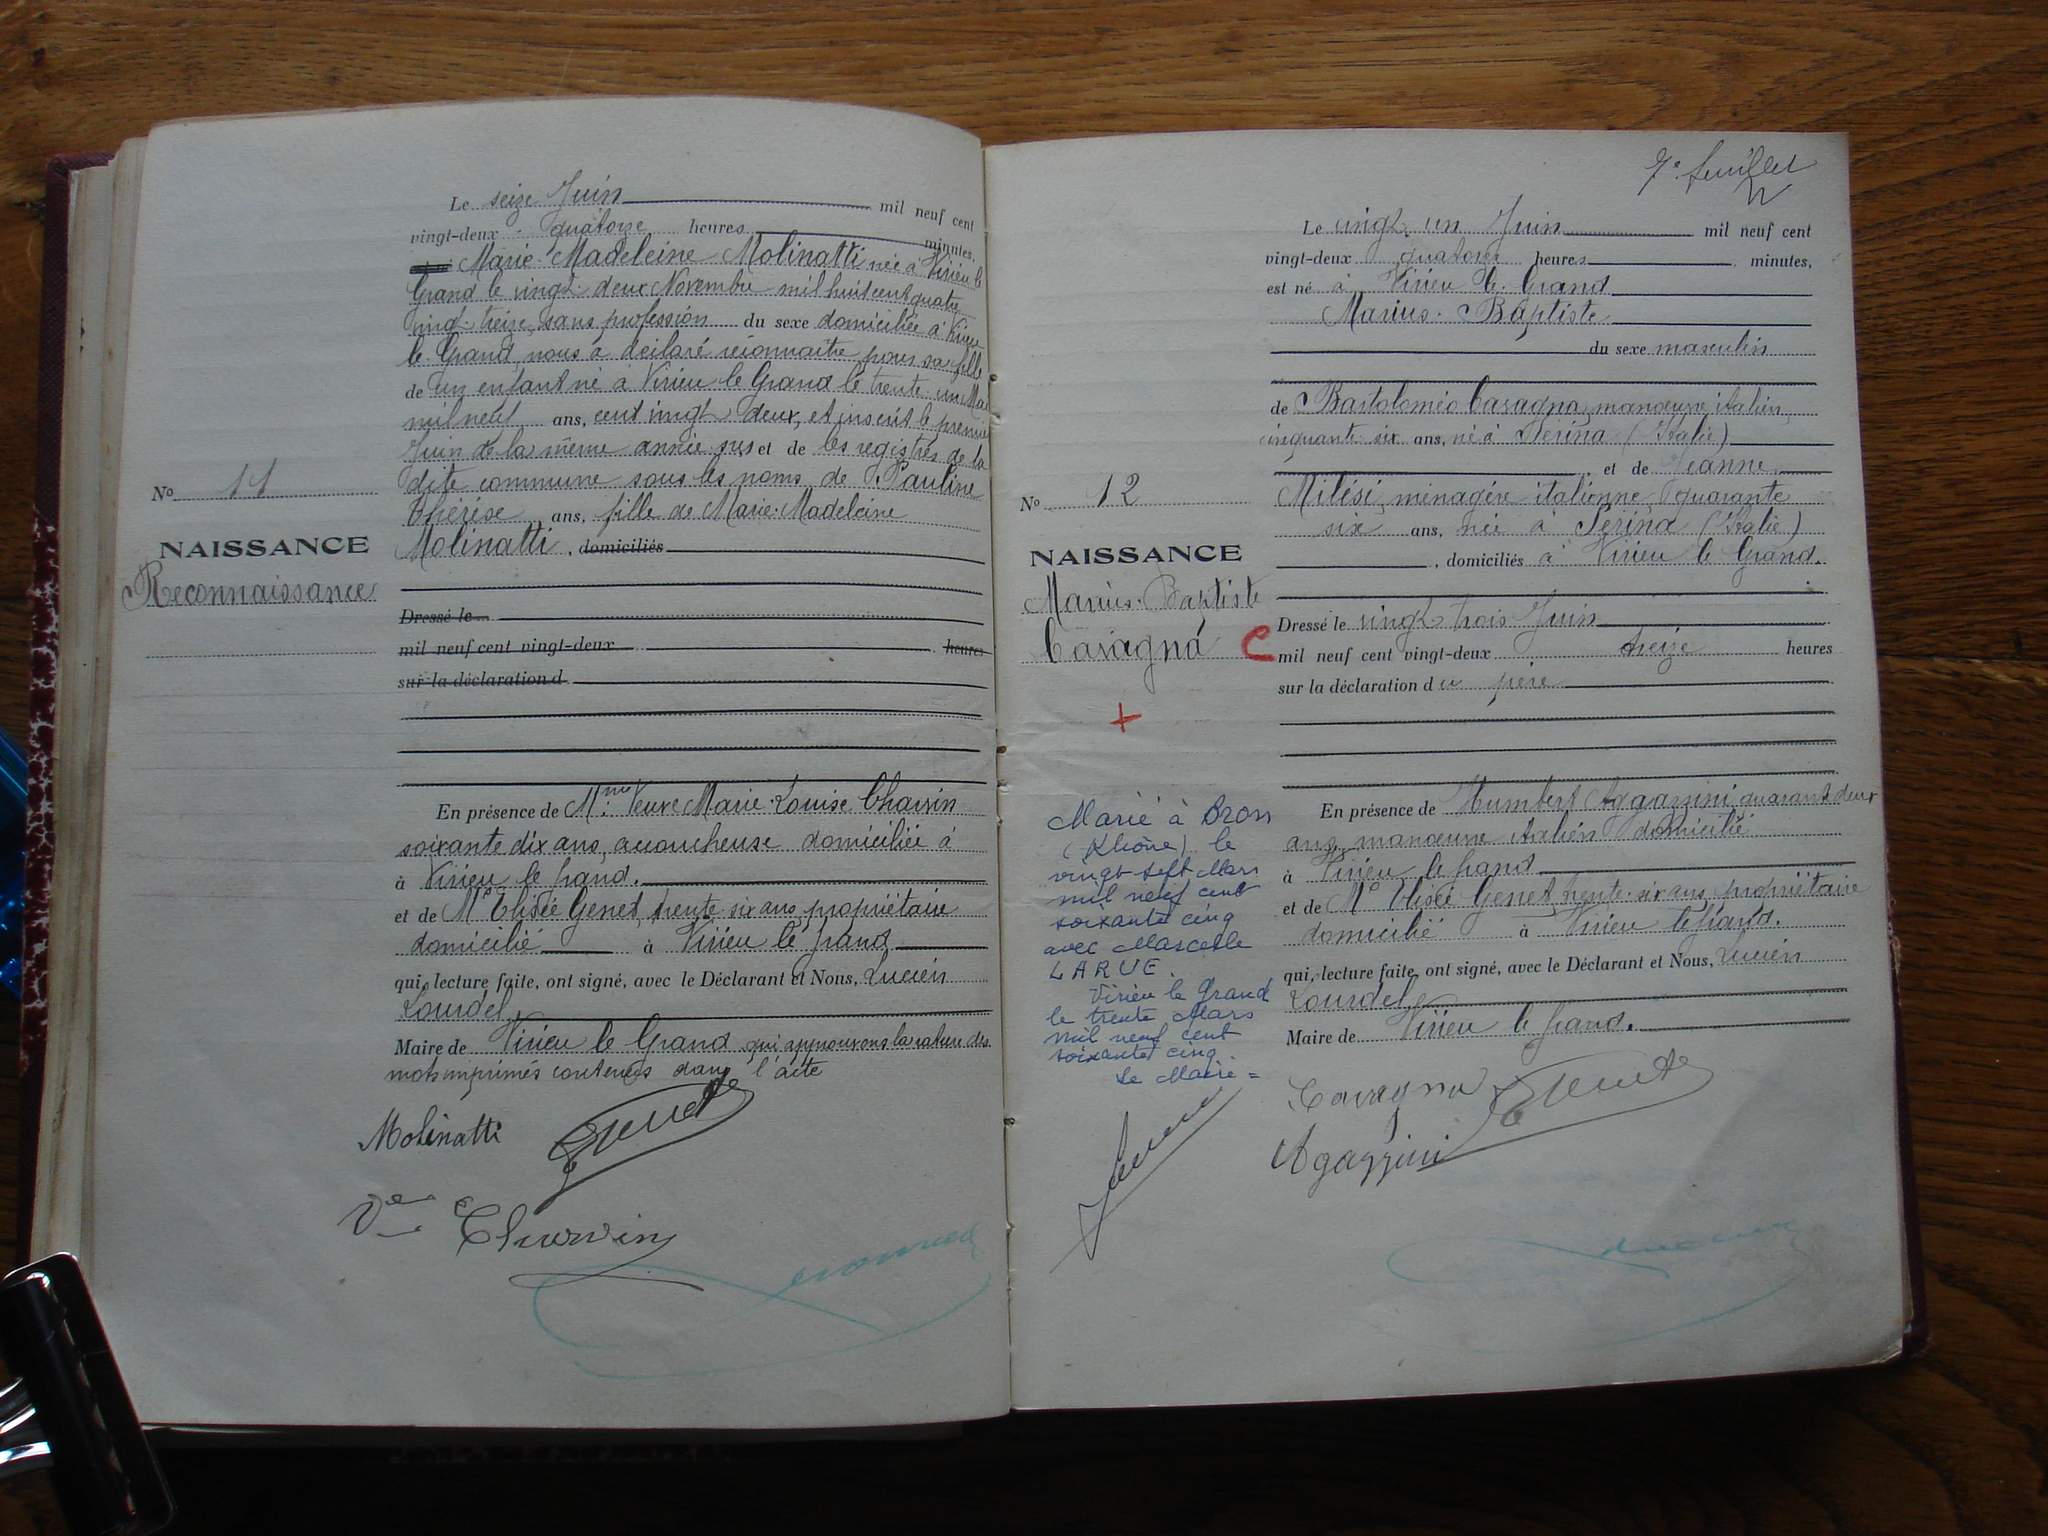 Le seize Juin mil neuf cent
vingt-deux quatorze heures minutes,
Marie-Madeleine Molinatti née à Virieu le
Grand le vingt deux Novembre mil huit cent quatre
vingt treize, sans profession du sexe domiciliée à Virieu
le Grand, nous a déclaré reconnaitre pour sa fille
de un enfant né à Virieu le Grand le trente un Mai
mil neuf ans, cent vingt deux, et inscrit le premier
Juin de la même année sur et de les registres de la
dite commune sous les noms de Pauline
Thérèse ans, fille de Marie-Madeleine
Molinatti, domiciliés
No 11
NAISSANCE
Reconnaissance
Dressé le
mil neuf cent vingt-deux heures
sur la déclaration d
En présence de Mme Veuve Marie-Louise Charvin
soixante dix ans, accoucheuse domiciliée à
à Virieu le Grand.
et de Mr Elisée Genet, trente six ans, propriétaire
domicilié à Virieu le Grand
qui, lecture faite, ont signé, avec le Déclarant et Nous, Lucien
Lourdel
Maire de Virieu le Grand qui approuvons la rature des
mots imprimés contenus dans l'acte
Molinatti
Genet
Vve Charvin
7e feuillet
Le vingt un Juin mil neuf cent
vingt-deux quatorze heures minutes,
est né à Virieu le Grand
Marius-Baptiste
du sexe masculin
de Bartoloméo Cavagna, manoeuvre italien,
cinquante six ans, né à Serina (Italie)
et de Jeanne
Milési, ménagère italienne, quarante
six ans, née à Serina (Italie)
, domiciliés à Virieu le Grand.
No 12
NAISSANCE
Marius-Baptiste
Cavagna C
+
Dressé le vingt trois Juin
mil neuf cent vingt-deux treize heures
sur la déclaration du père
En présence de Humbert Aggazzini, quarante deux
ans, manoeuvre italien domicilié
à Virieu le Grand
et de Mr Elisée Genet, trente-six ans, propriétaire
domicilié à Virieu le Grand.
qui, lecture faite, ont signé, avec le Déclarant et Nous, Lucien
Lourdel
Maire de Virieu le Grand.
Marié à Bron
(Rhône) le
vingt-sept Mars
mil neuf cent
soixante cinq
avec Marcelle
LARUE.
Virieu le Grand
le trente Mars
mil neuf cent
soixante cinq.
Le Maire =
Cavagna Genet
Agazzini